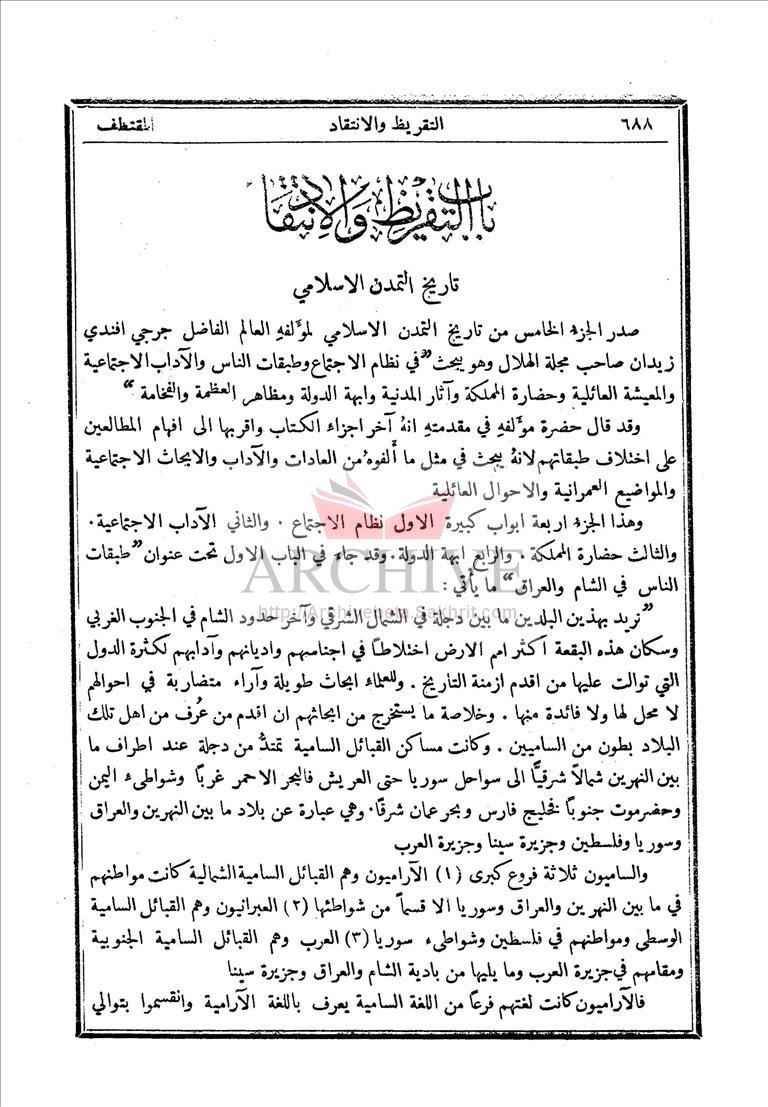 ٦٨٨ التقريظ والانتقاد المقتطف
باب التقريظ والانتقاد
تاريخ التمدن الاسلامي
صدر الجزء الخامس من تاريخ التمدن الاسلامي لمؤلفهِ العالم الفاضل جرجي افندي
زيدان صاحب مجلة الهلال وهو يبحث ”في نظام الاجتماع وطبقات الناس والآداب الاجتماعية
والمعيشة العائلية وحضارة المملكة وآثار المدنية وابهة الدولة ومظاهر العظمة والفخامة “
وقد قال حضرة مؤلفهِ في مقدمتهِ انهُ آخر اجزاء الكتاب واقربها الى افهام المطالعين
على اختلاف طبقاتهم لانهُ يبحث في مثل ما ألفوه ُمن العادات والآداب والابحاث الاجتماعية
والمواضيع العمرانية والاحوال العائلية
وهذا الجزء اربعة ابواب كبيرة الاول نظام الاجتماع . والثاني الآداب الاجتماعية .
والثالث حضارة المملكة . والرابع ابهة الدولة . وقد جاء في الباب الاول تحت عنوان ”طبقات
الناس في الشام والعراق“ ما يأتي :
ARCHIVE
http://Archivebeta.Sakhrit.com
”نريد بهذين البلدين ما بين دجلة في الشمال الشرقي وآخر حدود الشام في الجنوب الغربي
وسكان هذه البقعة اكثر امم الارض اختلاطاً في اجناسهم واديانهم وآدابهم لكثرة الدول
التي توالت عليها من اقدم ازمنة التاريخ . وللعلماء ابحاث طويلة وآراء متضاربة في احوالهم
لا محل لها ولا فائدة منها . وخلاصة ما يستخرج من ابحاثهم ان اقدم من عُرف من اهل تلك
البلاد بطون من الساميين . وكانت مساكن القبائل السامية تمتدُّ من دجلة عند اطراف ما
بين النهرين شمالاً شرقيًّا الى سواحل سوريا حتى العريش فالبحر الاحمر غربًا وشواطىء اليمن
وحضرموت جنوبًا فخليج فارس وبحر عمان شرقًا . وهي عبارة عن بلاد ما بين النهرين والعراق
وسوريا وفلسطين وجزيرة سينا وجزيرة العرب
والساميون ثلاثة فروع كبرى (١) الآراميون وهم القبائل السامية الشمالية كانت مواطنهم
في ما بين النهرين والعراق وسوريا الا قسماً من شواطئها (٢) العبرانيون وهم القبائل السامية
الوسطى ومواطنهم في فلسطين وشواطىء سوريا (٣) العرب وهم القبائل السامية الجنوبية
ومقامهم في جزيرة العرب وما يليها من بادية الشام والعراق وجزيرة سينا
فالآراميون كانت لغتهم فرعًا من اللغة السامية يعرف باللغة الآرامية وانقسموا بتوالي